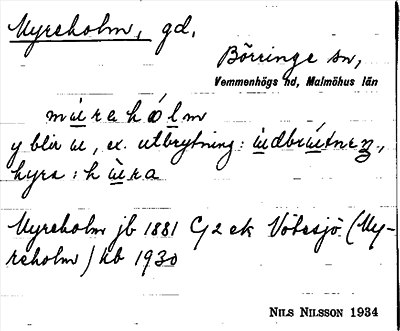 Myreholm, gd.
Börringe sn,
Vemmenhögs hd, Malmöhus län
mùrahólm
y blir u, ex. utbrytning: ùdbrútneŋ,
hyra: hùra
Myreholm jb 1881 C 2 ek Vötesjö (My-
reholm) hb 1930
NILS NILSSON 1934